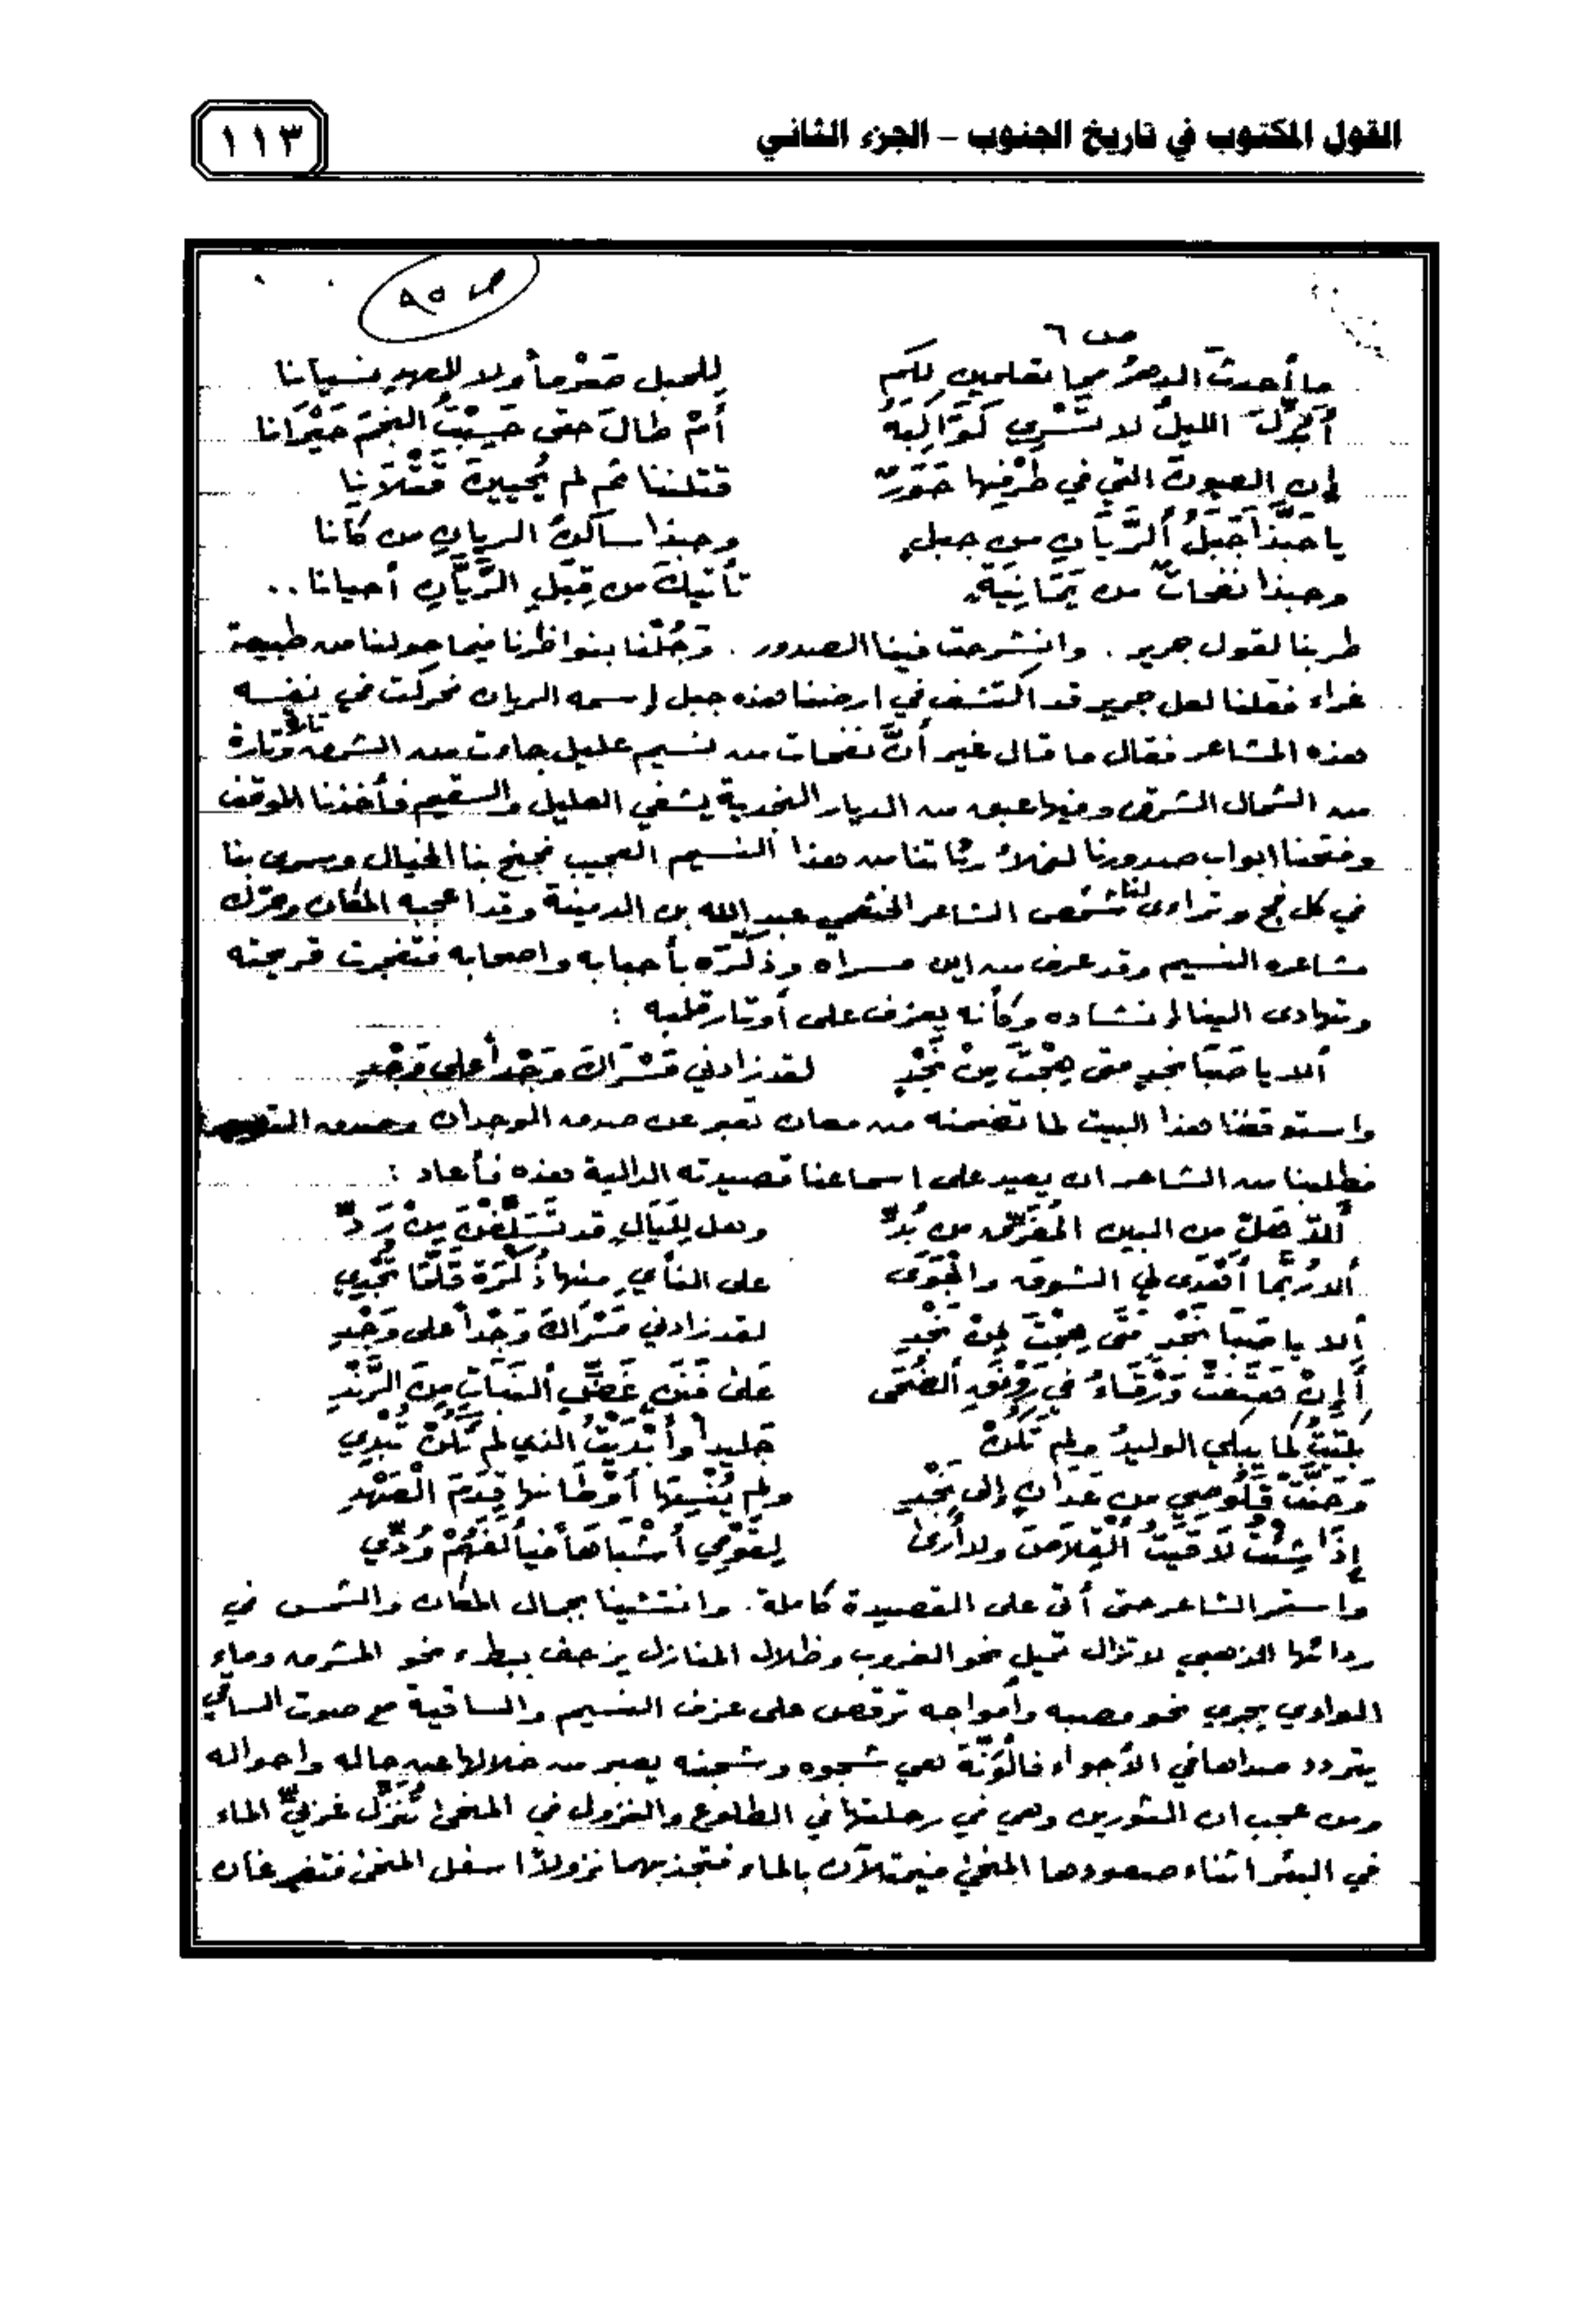 القول المكتوب في تاريخ الجنوب – الجزء الثاني
١١٣
ص ٨٥
ص ٦
ما أحدثَ الدهرُ مما تعلمين لكم للحبل صَرْماً ولا للعهد نسيانا
أبُدِّلَ الليلُ لا تَسْرِي كَوَاكِبُهُ أمْ طالَ حتى حَسِبْتُ النجْمَ حَيْرَانا
إن العيونَ التي في طرْفِها حَوَرٌ قتلننا ثم لم يُحيينَ قَتْلَانا
يا حَبَّذَا جَبَلُ ألرَّيَّانِ من جبلٍ وحبذا ساكنُ الريانِ من كانا
وحبذا نفحاتٌ من يَمَانِيَةٍ تأتيكَ من قِبَلِ الرَّيَّانِ أحيانا ..
طربنا لقول جرير . وانشرحت فينا الصدور . وَجُلْنا بنواظرنا فيما حولنا من طبيعة
غراء فقلنا لعل جرير قد اكتشف في ارضنا هذه جبل إسمه الريان فحركت في نفسه
هذه المشاعر فقال ما قال غير أنَّ نفحات من نسيم عليل جاءت من الشرق تارة وتارة
من الشمال الشرقي وفيها عبق من الديار النجدية يشفي العليل والسقيم فأخذنا الموقف
وفتحنا ابواب صدورنا لنملأ رئاتنا من هذا ألنسيم العجيب فجنح بنا الخيال وسرى بنا
في كل فج وتراءى لنا شخص الشاعر الخثعمي عبد الله بن الدمينة وقد اعجبه المكان وحرّك
مشاعره النسيم وقد عرف من اين مسراه وذكّرَه بأحبابه واصحابه فتفجرت قريحته
وتهادى الينا إنشاده وكأنه يعزف على أوتار قلبه :
ألا يا صَبَا نجدٍ متى هِجْتَ مِنْ نَجْدِ لقد زادني مَسْرَاكَ وَجْداً على وَجْدِ
واستوقفنا هذا البيت لما تضمنه من معان تعبر عن صدق الوجدان وصدق
فطلبنا من الشاعر ان يعيد على اسماعنا قصيدته الدالية هذه فأعاد :
ألا هَلْ مِن البين المُفَرِّقِ من بُدِّ وهل لِلَيَالٍ قد تَسَلَّفْنَ مِنْ رَدِّ
ألا رُبَّما أهْدَى لي الشوق والجَوَى على النأي منها ذُكْرَةً قَلَّمَا تُجْدِي
ألا يا صَبَا نَجْدٍ مَتَى هِجْتَ مِنْ نَجْدِ لقد زادني مَسْرَاكَ وَجْداً على وَجْدِ
أإنْ هَتَفَتْ وَرْقَاءُ في رَوْنَقِ ألضُحَى عَلَى فَنَنٍ غَضِّ ألنَبَاتِ مِنَ الرَّنْدِ
بَكَيْتَ كما يبكي الوليدُ ولم تَكُنْ جَليداً وأبْدَيْتَ الذي لم تَكُنْ تُبْدِي
وَحَنَّتْ قَلُوصِي مِن عَدَانٍ إلى نَجْدٍ ولم يُنْسِهَا أوْطَانها قِدَمَ الْعَهْدِ
إذَا شِئْتَ لَاقَيْتُ الْقِلَاصَ ولا أرَى لِقَوْمِي أشْبَاهَاً فيألفَهُمْ وُدِّي
واستمر الشاعر حتى أتى على القصيدة كاملة . وانتشينا بجمال المكان والشمس في
ردائها الذهبي لا تزال تميل نحو الغروب وظلال المنازل يزحف ببطء نحو المشرق وماء
الوادي يجري نحو مصبه وأمواجه ترقص على عزف النسيم والساقية مع صوت الساقي
يتردد صداها في الأجواء شجوه وشجنه يعبر من خلالها عن حاله واحواله
ومن عجب ان الثورين وهي في رحلتها في الطلوع والنزول في المنحى تُنَزِّل غربيِّ الماء
في البئر اثناء صعودها المنحى فيمتلآن بالماء فتجذبهما نزولاً اسفل المنحى فتفرغان